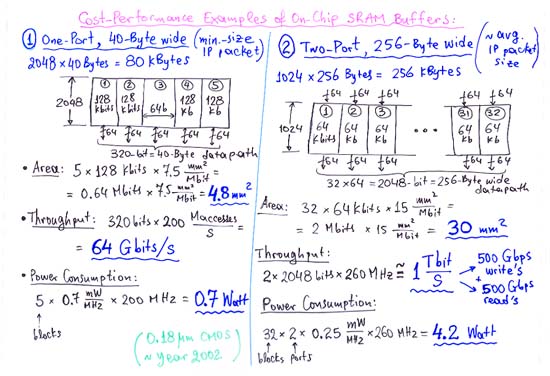 Cost-Performance Examples of On-Chip SRAM Buffers:
① One-Port, 40-Byte wide (min.-size IP packet)
2048 × 40 Bytes = 80 KBytes
① ② ③ ④ ⑤
2048
128 Kbits
128 Kbits
64b
128 Kb
128 Kb
64 64 64 64 64
320-bit = 40-Byte datapath
• Area: 5 × 128 Kbits × 7.5 mm²/Mbit =
= 0.64 Mbits × 7.5 mm²/Mbit = 4.8 mm²
• Throughput: 320 bits × 200 Maccesses/s =
= 64 Gbits/s
• Power Consumption:
5 × 0.7 mW/MHz × 200 MHz = 0.7 Watt
blocks
(0.18 μm CMOS)
(~ year 2002)
② Two-Port, 256-Byte wide (~ avg. IP packet size)
1024 × 256 Bytes = 256 KBytes
64 64 64 64 64
① ② ③ ㉛ ㉜
1024
64 Kbits
64 Kb
64 Kb
• • •
64 Kb
64 Kb
64 64 64 64 64
32×64 = 2048-bit = 256-Byte wide datapath
Area: 32 × 64 Kbits × 15 mm²/Mbit =
= 2 Mbits × 15 mm²/Mbit = 30 mm²
Throughput:
2 × 2048 bits × 260 MHz ≅ 1 Tbit/s
500 Gbps write's
+
500 Gbps read's
Power Consumption:
32 × 2 × 0.25 mW/MHz × 260 MHz = 4.2 Watt
blocks ports